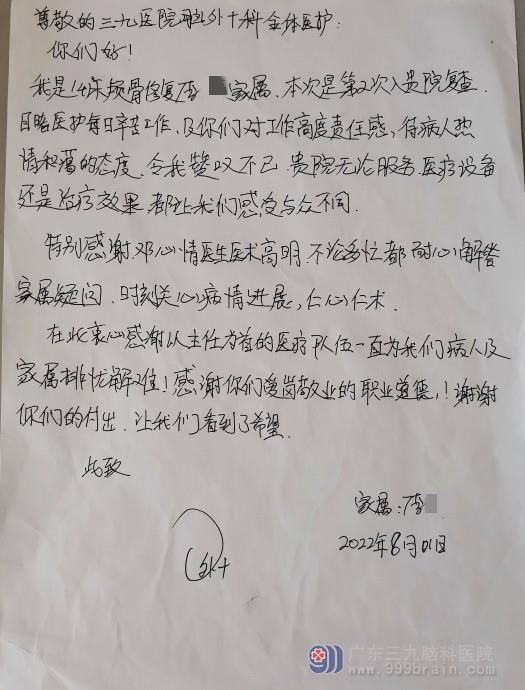 尊敬的三九医院神外十科全体医护:
你们好!
我是14床损骨修复李 家属.本次是第2次入贵院复查.
目睹医护每日辛苦工作,及你们对工作高度责任感,待病人热
情和蔼的态度.令我赞叹不已.贵院无论服务.医疗设备
还是治疗效果.都让我们感受与众不同.
特别感谢邓心情医生医术高明.不论多忙都耐心解答
家属疑问.时刻关心病情进展,仁心仁术.
在此衷心感谢以主任为首的医疗队伍一直为我们病人及
家属排忧解难!感谢你们爱岗敬业的职业道德,!谢谢
你们的付出.让我们看到了希望.
此致
家属:李
2022年8月01日
广东三九脑科医院
www.999brain.com